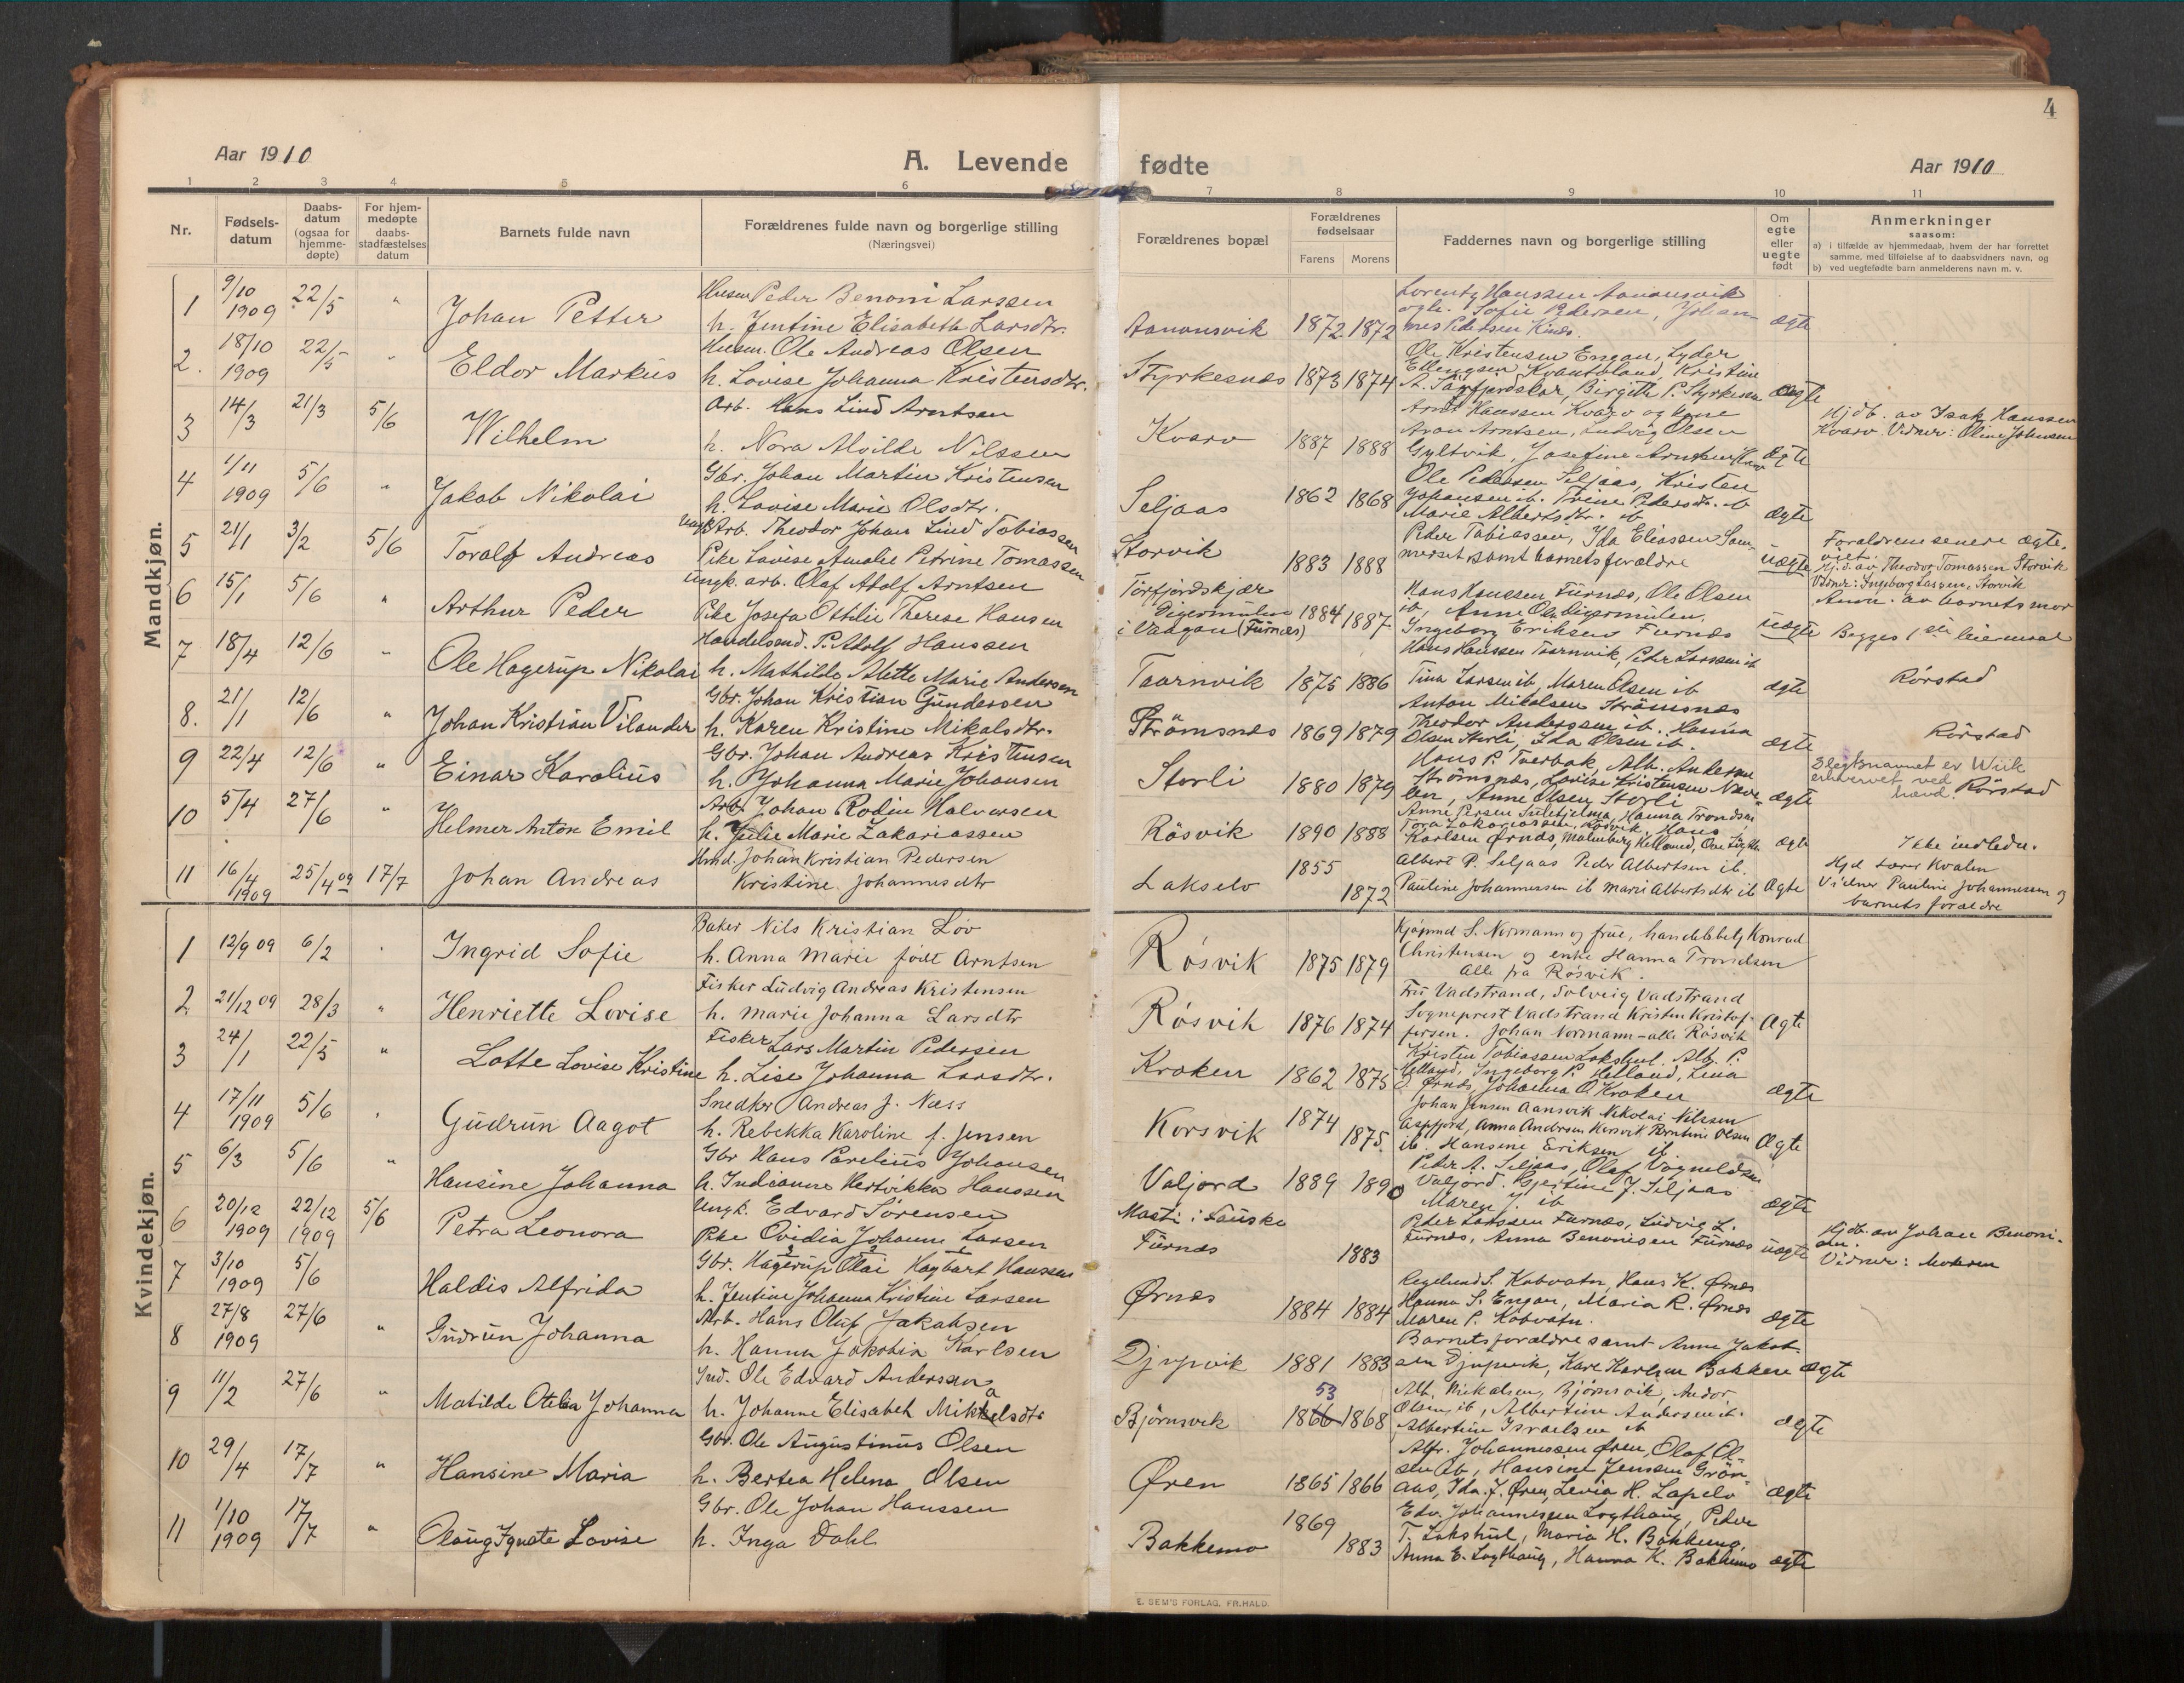 4
Aar 1910
A. Levende fødte
Aar 1910
1 2 3 4 5 6 7 8 9 10 11
Nr.
Fødsels-
datum
Daabs-
datum
(ogsaa for
hjemme-
døpte)
For hjem-
medøpte
daabs-
stadfæstelses
datum
Barnets fulde navn
Forældrenes fulde navn og borgerlige stilling
(Næringsvei)
Forældrenes bopæl
Forældrenes
fødselsaar
Farens Morens
Faddernes navn og borgerlige stilling
Om
egte
eller
uegte
født
Anmerkninger
saasom:
a) i tilfælde av hjemmedaab, hvem der har forrettet
samme, med tilføielse af to daabsvidners navn, og
b) ved uegtefødte barn anmelderens navn m. v.
Mandkjøn.
1 9/10 1909 22/5 " Johan Petter
Husm Peder Benoni Larssen
h. Jentine Elisabeth Larsdtr.
Aanonsvik 1872 1872
Lorentz Hanssen Aanonsvik
ogh. Sofie Pedersen, Johan-
nes Pedersen Kines.
ægte
2. 18/10 1909 22/5 " Eldor Markus
Husm. Ole Andreas Olsen
h. Lovise Johanna Kristensdtr.
Styrkesnes 1873 1874
Ole Kristensen Engan, Lyder
Ellingsen Kvantoland, Kristine
A. Tørfjordskar, Birgith P. Styrkesn
ægte
3 14/3 21/3 5/6 Wilhelm
Arb. Hans Lind Arntsen
h. Nora Alvilde Nilssen
Kvarv 1887 1888
Arnt Hanssen Kvarv og kone
Aron Arntsen, Ludvig Olsen
Gyltvik, Josefine Arntsen Kvarv
Ægte
Hjdb. av Isak Hanssen
Kvarv. Vidner: Oline Johnsen
4 1/11 1909 5/6 " Jakob Nikolai
Gbr. Johan Martin Kristensen
h. Lovise Marie Olsdtr.
Seljaas 1862 1868
Ole Pedersen Seljaas, Kristen
Johansen ib. Trine Pedersdtr. ib
Marie Albertsdtr. ib
ægte
5 21/1 3/2 5/6 Toralf Andreas
Ungk Arb. Theodor Johan Lind Tobiassen
Pike Lovise Amalie Petrine Tomassen
Storvik 1883 1888
Peder Tobiassen, Ida Eliassen Som-
merset samt barnets forældre
uægte
Forældrene senere ægte-
viet.
Hj.d. av Theodor Tomassen Storvik
Vidner: Ingeborg Larsen, Storvik
6 15/1 5/6 " Arthur Peder
Ungk. arb. Olaf Adolf Arntsen
Pike Josefa Othilie Therese Hansen
Tørfjordskjær
Digermulen
i Vaagan (Furnes) 1884 1887
Hans Hanssen Furnes, Ole Olsen
ib, Anne Ols. Digermulen,
Ingeborg Eriksen Furnes
uægte
Anm. av barnets mor
Begges 1ste leiermaal
7 18/4 12/6 " Ole Hagerup Nikolai
Handelsmd. P. Adolf Hanssen
h. Mathilde Alette Marie Andersen
Taarnvik 1875 1886
Hans Hanssen Taarnvik, Peter Larssen ib
Tina Larsen ib, Maren Olsen ib
ægte
Rørstad
8. 21/1 12/6 " Johan Kristian Vilander
Gbr. Johan Kristian Gundersen
h. Karen Kristine Mikalsdtr.
Strømsnes 1869 1879
Anton Mikalsen Strømsnes
Theodor Anderssen ib. Hanna
Olsen Storli, Ida Olsen ib.
ægte
Rørstad
9 22/4 12/6 " Einar Karolius
Gbr. Johan Andreas Kristensen
h. Johanna Marie Johansen
Storli 1880 1879
Hans P. Tverbak, Alb. Andersen
Strømsnes, Lovise Kristensen
Anne Olsen Storli
ægte
Slegtsnavnet er Wiik
erhvervet ved
hævd. Rørstad
10 5/4 27/6 " Helmer Anton Emil
Arb. Johan Rodin Halvorsen
h. Julie Marie Zakariassen
Røsvik 1890 1888
Anne Jersen Sulitjelma, Hanna Trondsen
Tora Zakariassen, Røsvik, Hans
Karlsen Ørnes, Malmberg Helland,
ægte
Ikke indledn.
11 16/4 1909 25/4 09 17/7 Johan Andreas
Hmd. Johan Kristian Pedersen
Kristine Johannesdtr
Lakselv 1855 1872
Albert P. Seljaas Peder Albertsen ib.
Pauline Johannessen ib Marie Albertsdtr ib
Ægte
Hjd lærer Kvalen
Vidner Pauline Johannessen og
barnets forældre
Kvindekjøn.
1 12/9 09 6/2 " Ingrid Sofie
Baker Nils Kristian Löv
h. Anna Marie født Arntsen
Røsvik 1875 1879
Kjøpmd S. Normann og frue, handelsbetj Konrad
Christensen og enke Hanna Trondsen
Alle fra Røsvik.
2 21/12 09 28/3 " Henriette Lovise
Fisker Ludvig Andreas Kristensen
h. Marie Johanna Larsdtr
Røsvik 1876 1874
Fru Vadstrand, Solveig Vadstrand
Sogneprest Vadstrand Kristen Kristof-
fersen. Johan Normann - alle Røsvik
Ægte
3 24/1 22/5 " Lotte Lovise Kristine
Fisker Lars Martin Pedersen
h. Lise Johanna Larsdtr.
Kroken 1862 1875
Kristen Tobiassen Lakshol. Alb. P.
Helland, Ingeborg P. Helland, Lina
O. Ørnes, Johanna O. Kroken
ægte
4 17/11 1909 5/6 " Gudrun Aagot
Snedker Andreas J. Næss
h. Rebekka Karoline f. Jensen
Korsvik 1874 1875.
Johan Jensen Aansvik Nikolai Nilssen
Aspfjord, Anna Andersen Korsvik Berntine Olsen
ib. Hansine Eriksen ib
Ægte
5 6/3 5/6 " Hansine Johanna
Gbr Hans Parelius Johansen
h. Indianne Hertvikka Hanssen
Valjord 1889 1890
Peder A. Seljaas, Olaf
Valjord. Gjertine J. Seljaas
Maren J. ib
ægte
6 20/12 1909 22/12 1909 5/6 Petra Leonora
Ungk. Edvard Sørensen
Pike Ovidia Johanne Larsen
Moati i Fauske
Furnes 1883
Peder Larssen Furnes, Ludvig L.
Furnes, Anna Benonisen Furnes
uægte
Hjdb. av Johan Benoni-
sen.
Vidner: Moderen
7 3/10 1909 5/6 Haldis Alfrida
Gbr. Hagerup Olai Hagbart Hanssen
h. Jentine Johanna Kristine Larsen
Ørnes 1884 1884
S. Kobvatn, Hans K. Ørnes
Hanna S. Engan, Maria R. Ørnes
Maren P. Kobvatn.
ægte
8 27/8 1909 27/6 " Gudrun Johanna
Arb. Hans Oluf Jakobsen
h. Hanna Jakobia Karlsen
Djupvik 1881 1883
Barnets forældre samt Anne Jakob-
sen Djupvik, Karl Karlsen Bakken
ægte
9 11/2 27/6 " Matilde Otelia Johanna
Ind. Ole Edvard Andersen
h. Johanne Elisabeth Mikkelsdtr
Bjørnsvik 53 1866 1868
Alb. Mikalsen, Bjørnsvik, Andor
Olsen, ib, Albertine Andersen ib.
Albertine Israelsen ib
ægte
10 29/4 17/7 " Hansine Maria
Gbr. Ole Augustinus Olsen
h. Bertea Helena Olsen
Øren 1865 1866
Alfr. Johannessen Øren, Olaf Ol-
sen ib, Hansine Jenssen Grøn-
aas, Ida J. Øren, Levia H. Lapelv
ægte
11 1/10 1909 17/7 " Olaug Lovise
Gbr. Ole Johan Hanssen
h. Inga Dahl
Bakkemo 1869 1883
Edv. Johannessen Løgthaug, Peder
T. Lakshol, Maria H. Bakkemo,
Anna E. Løgthaug, Hanna K. Bakkemo
ægte
E. SEM'S FORLAG, FR.HALD.